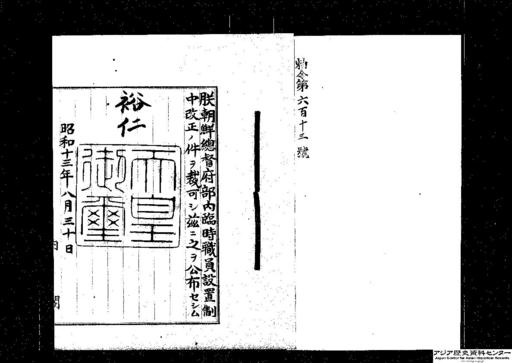 勅令第六百十三號
朕朝鮮總督府部內臨時職員設置制
中改正ノ件ヲ裁可シ茲ニ之ヲ公布セシム
裕仁
天皇御璽
昭和十三年八月三十日
アジア歴史資料センター
Japan Center for Asian Historical Records